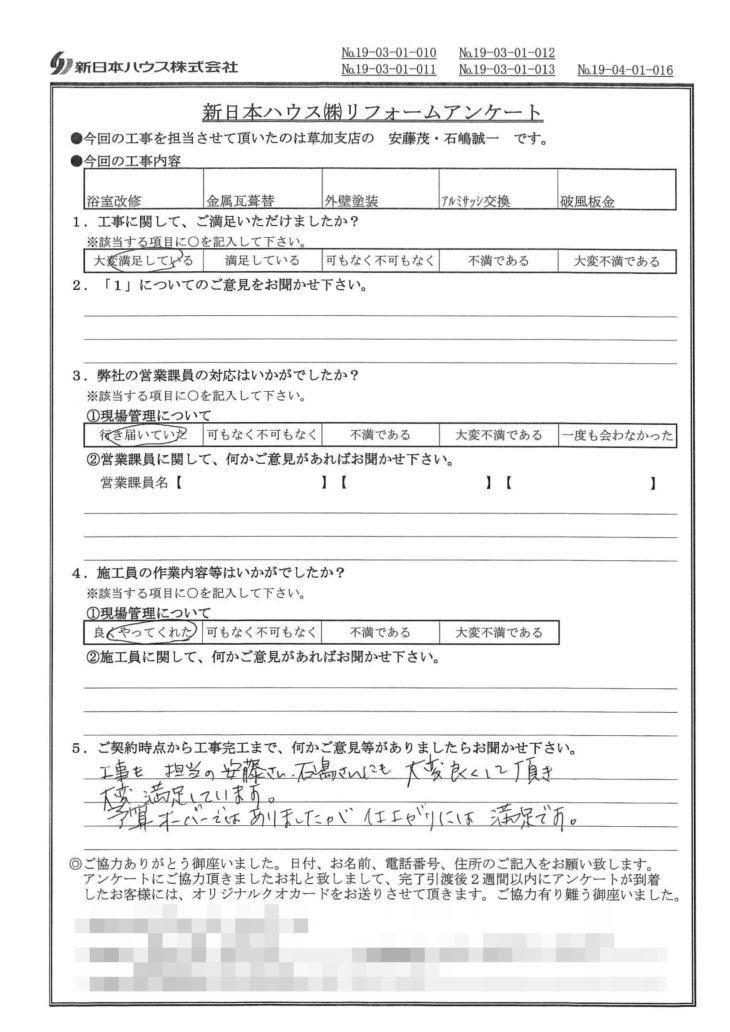 新日本ハウス株式会社
No.19-03-01-010 No.19-03-01-012
No.19-03-01-011 No.19-03-01-013 No.19-04-01-016
新日本ハウス㈱リフォームアンケート
●今回の工事を担当させて頂いたのは草加支店の 安藤茂・石嶋誠一 です。
●今回の工事内容
浴室改修 金属瓦葺替 外壁塗装 ｱﾙﾐｻｯｼ交換 破風板金
１．工事に関して、ご満足いただけましたか？
※該当する項目に○を記入して下さい。
大変満足している 満足している 可もなく不可もなく 不満である 大変不満である
２．「１」についてのご意見をお聞かせ下さい。
３．弊社の営業課員の対応はいかがでしたか？
※該当する項目に○を記入して下さい。
①現場管理について
行き届いていた 可もなく不可もなく 不満である 大変不満である 一度も会わなかった
②営業課員に関して、何かご意見があればお聞かせ下さい。
営業課員名【 】【 】【 】
４．施工員の作業内容等はいかがでしたか？
※該当する項目に○を記入して下さい。
①現場管理について
良くやってくれた 可もなく不可もなく 不満である 大変不満である
②施工員に関して、何かご意見があればお聞かせ下さい。
５．ご契約時点から工事完工まで、何かご意見等がありましたらお聞かせ下さい。
工事も 担当の安藤さん、石島さんにも 大変良くして頂き
大変 満足しています。
予算オーバーではありましたが 仕上がりには 満足です。
◎ご協力ありがとう御座いました。日付、お名前、電話番号、住所のご記入をお願い致します。
アンケートにご協力頂きましたお礼と致しまして、完了引渡後２週間以内にアンケートが到着
したお客様には、オリジナルクオカードをお送りさせて頂きます。ご協力有り難う御座いました。